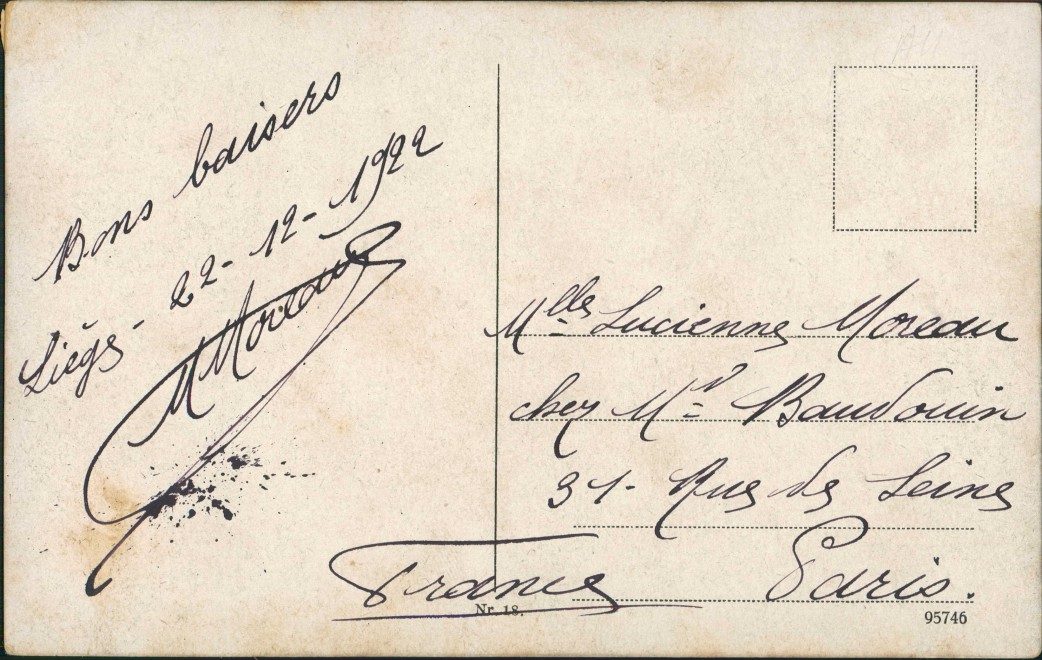 Bons baisers
Liège - 22-12-1922
M Moreau
Mlle Lucienne Moreau
chez Mr Baudouin
31. Rue de Seine
Paris.
France
Nr. 18.
95746